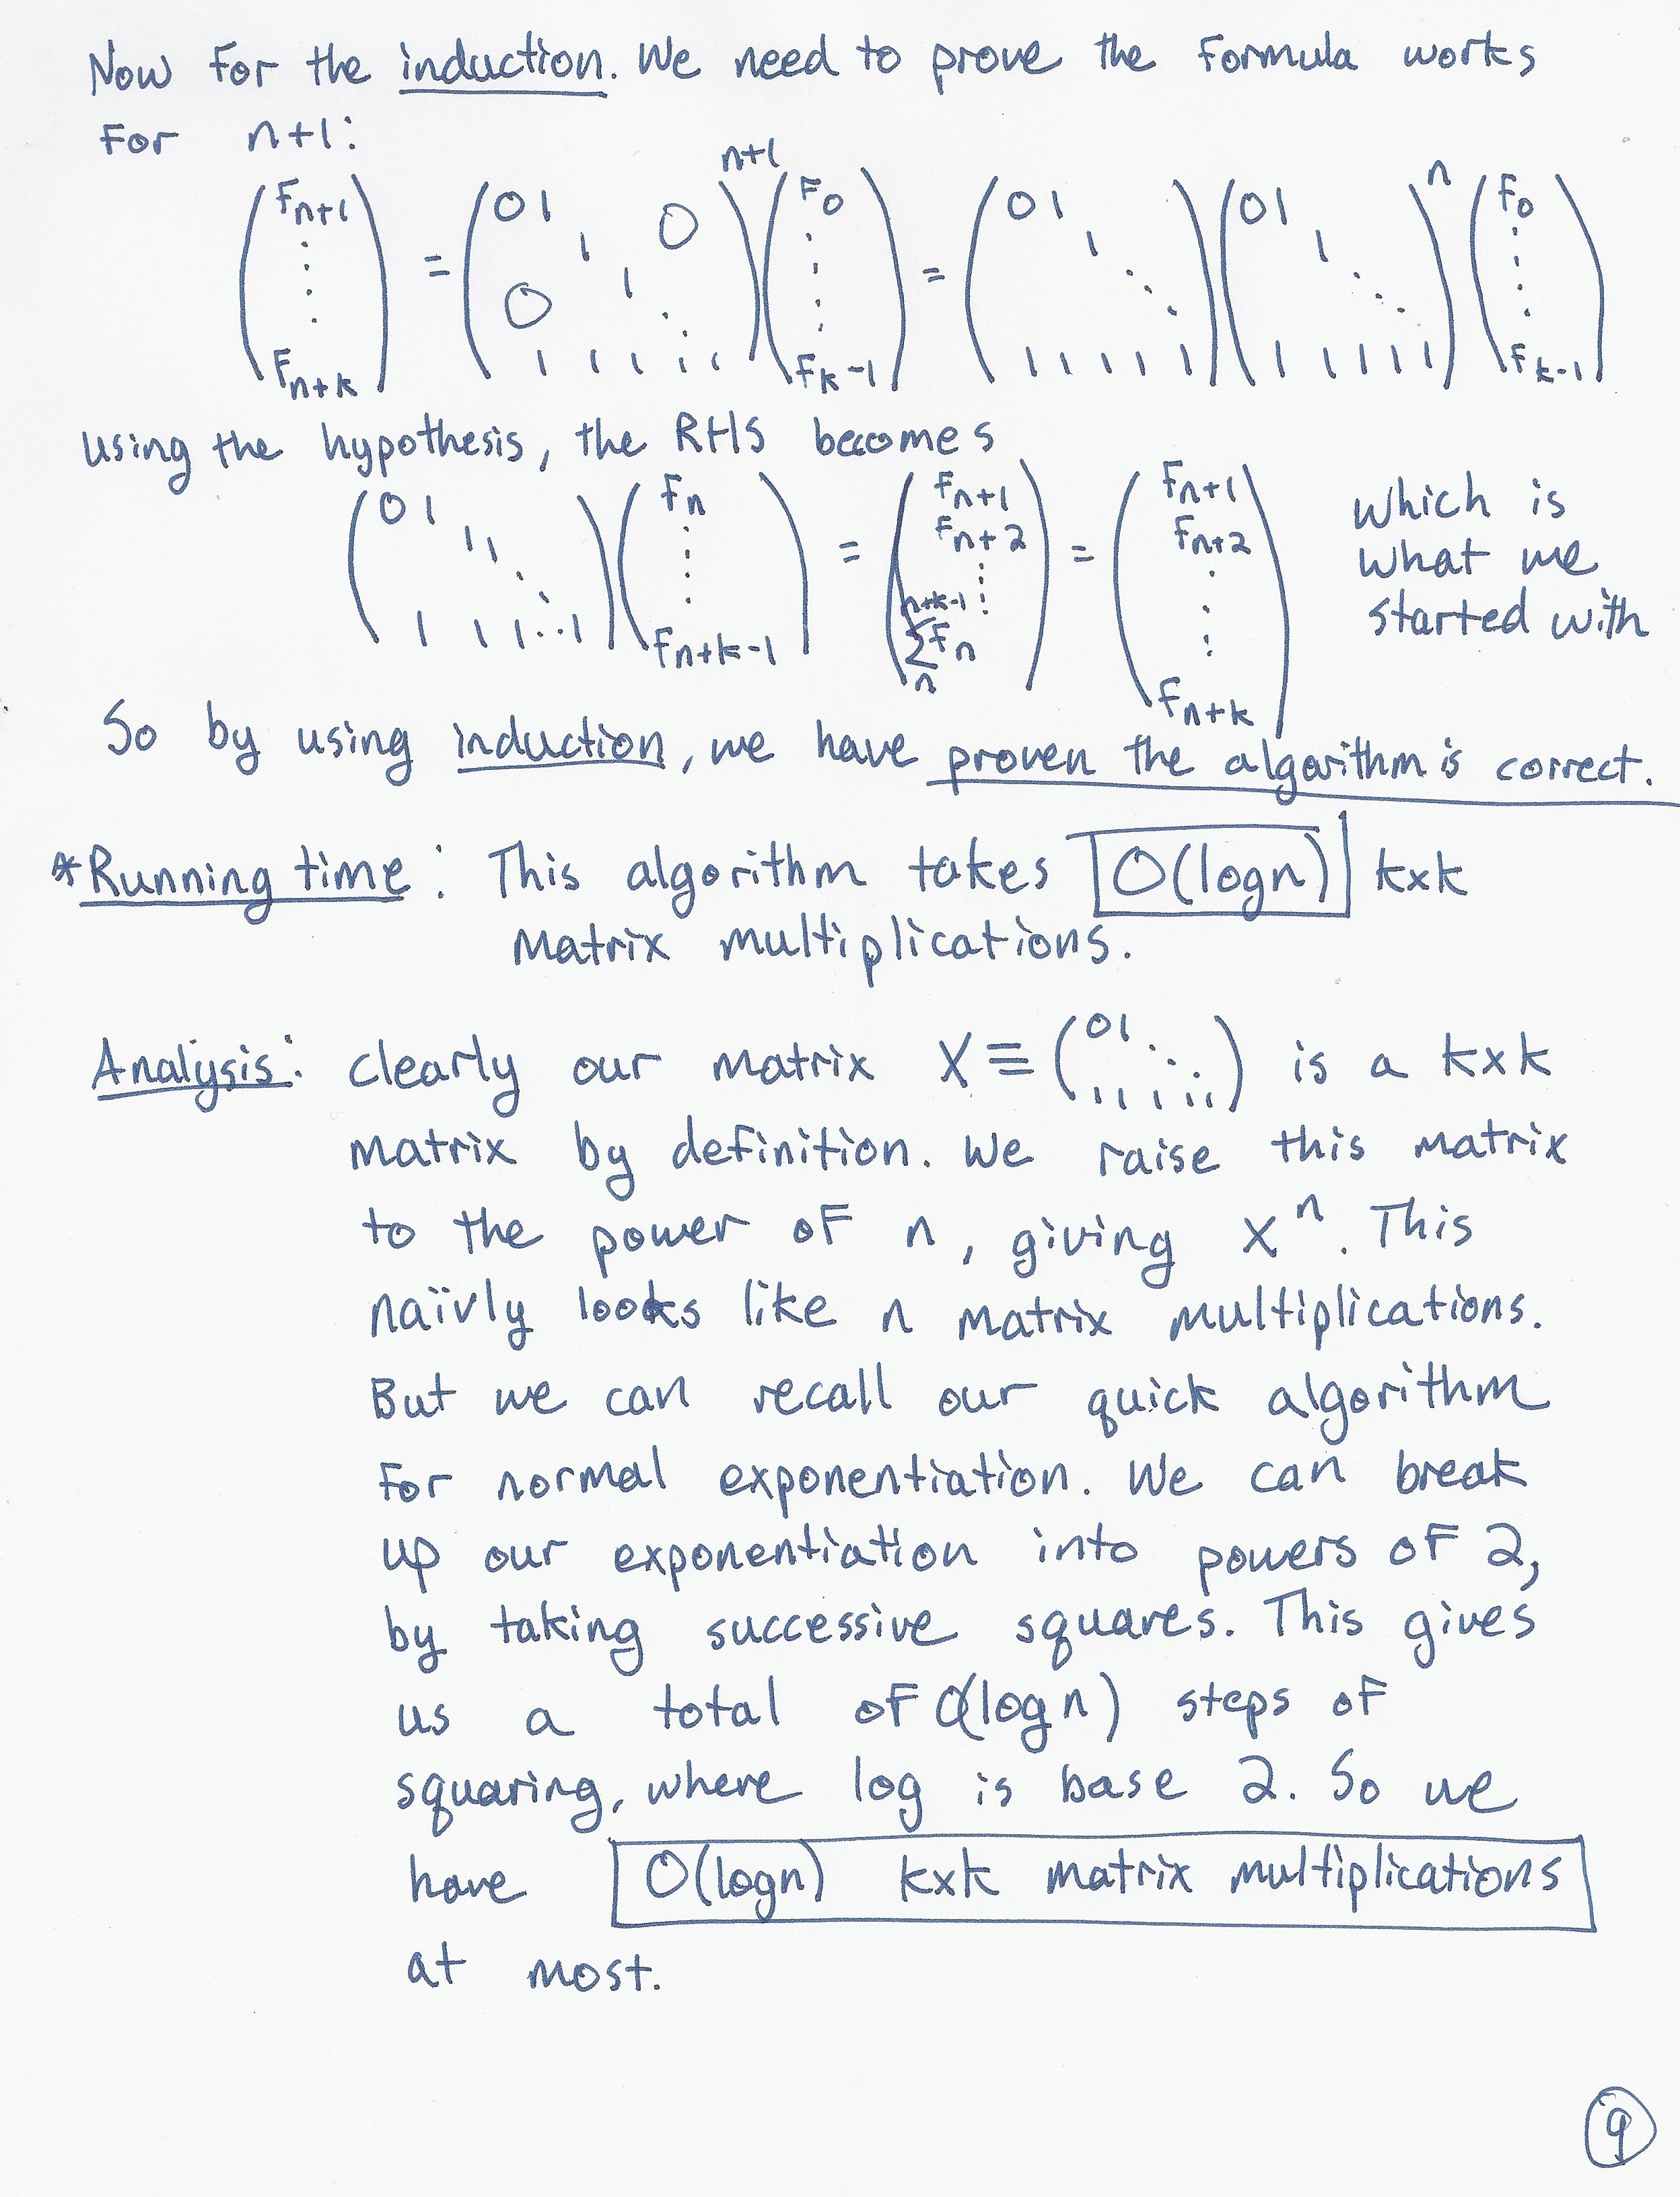 Now for the induction. We need to prove the formula works
for n+1:
(F_{n+1} ⋮ F_{n+k}) = (0 1 1 1 ⋱ 0 0 1 1 1 1 1)^{n+1} (F_0 ⋮ F_{k-1}) = (0 1 1 ⋱ 1 1 1 1 1) (0 1 1 ⋱ 1 1 1 1 1)^n (F_0 ⋮ F_{k-1})
using the hypothesis, the RHS becomes
(0 1 1 1 ⋱ 1 1 1 ... 1) (F_n ⋮ F_{n+k-1}) = (F_{n+1} F_{n+2} ⋮ ∑_{n}^{n+k-1} F_n) = (F_{n+1} F_{n+2} ⋮ F_{n+k}) which is
what we
started with
So by using induction, we have proven the algorithm is correct.
*Running time: This algorithm takes O(logn) kxk
matrix multiplications.
Analysis: clearly our matrix X ≡ (0 1 ⋱ 1 1 1 1 1) is a kxk
matrix by definition. We raise this matrix
to the power of n, giving X^n. This
naïvly looks like n matrix multiplications.
But we can recall our quick algorithm
for normal exponentiation. We can break
up our exponentiation into powers of 2,
by taking successive squares. This gives
us a total of O(logn) steps of
squaring, where log is base 2. So we
have O(logn) kxk matrix multiplications
at most.
9